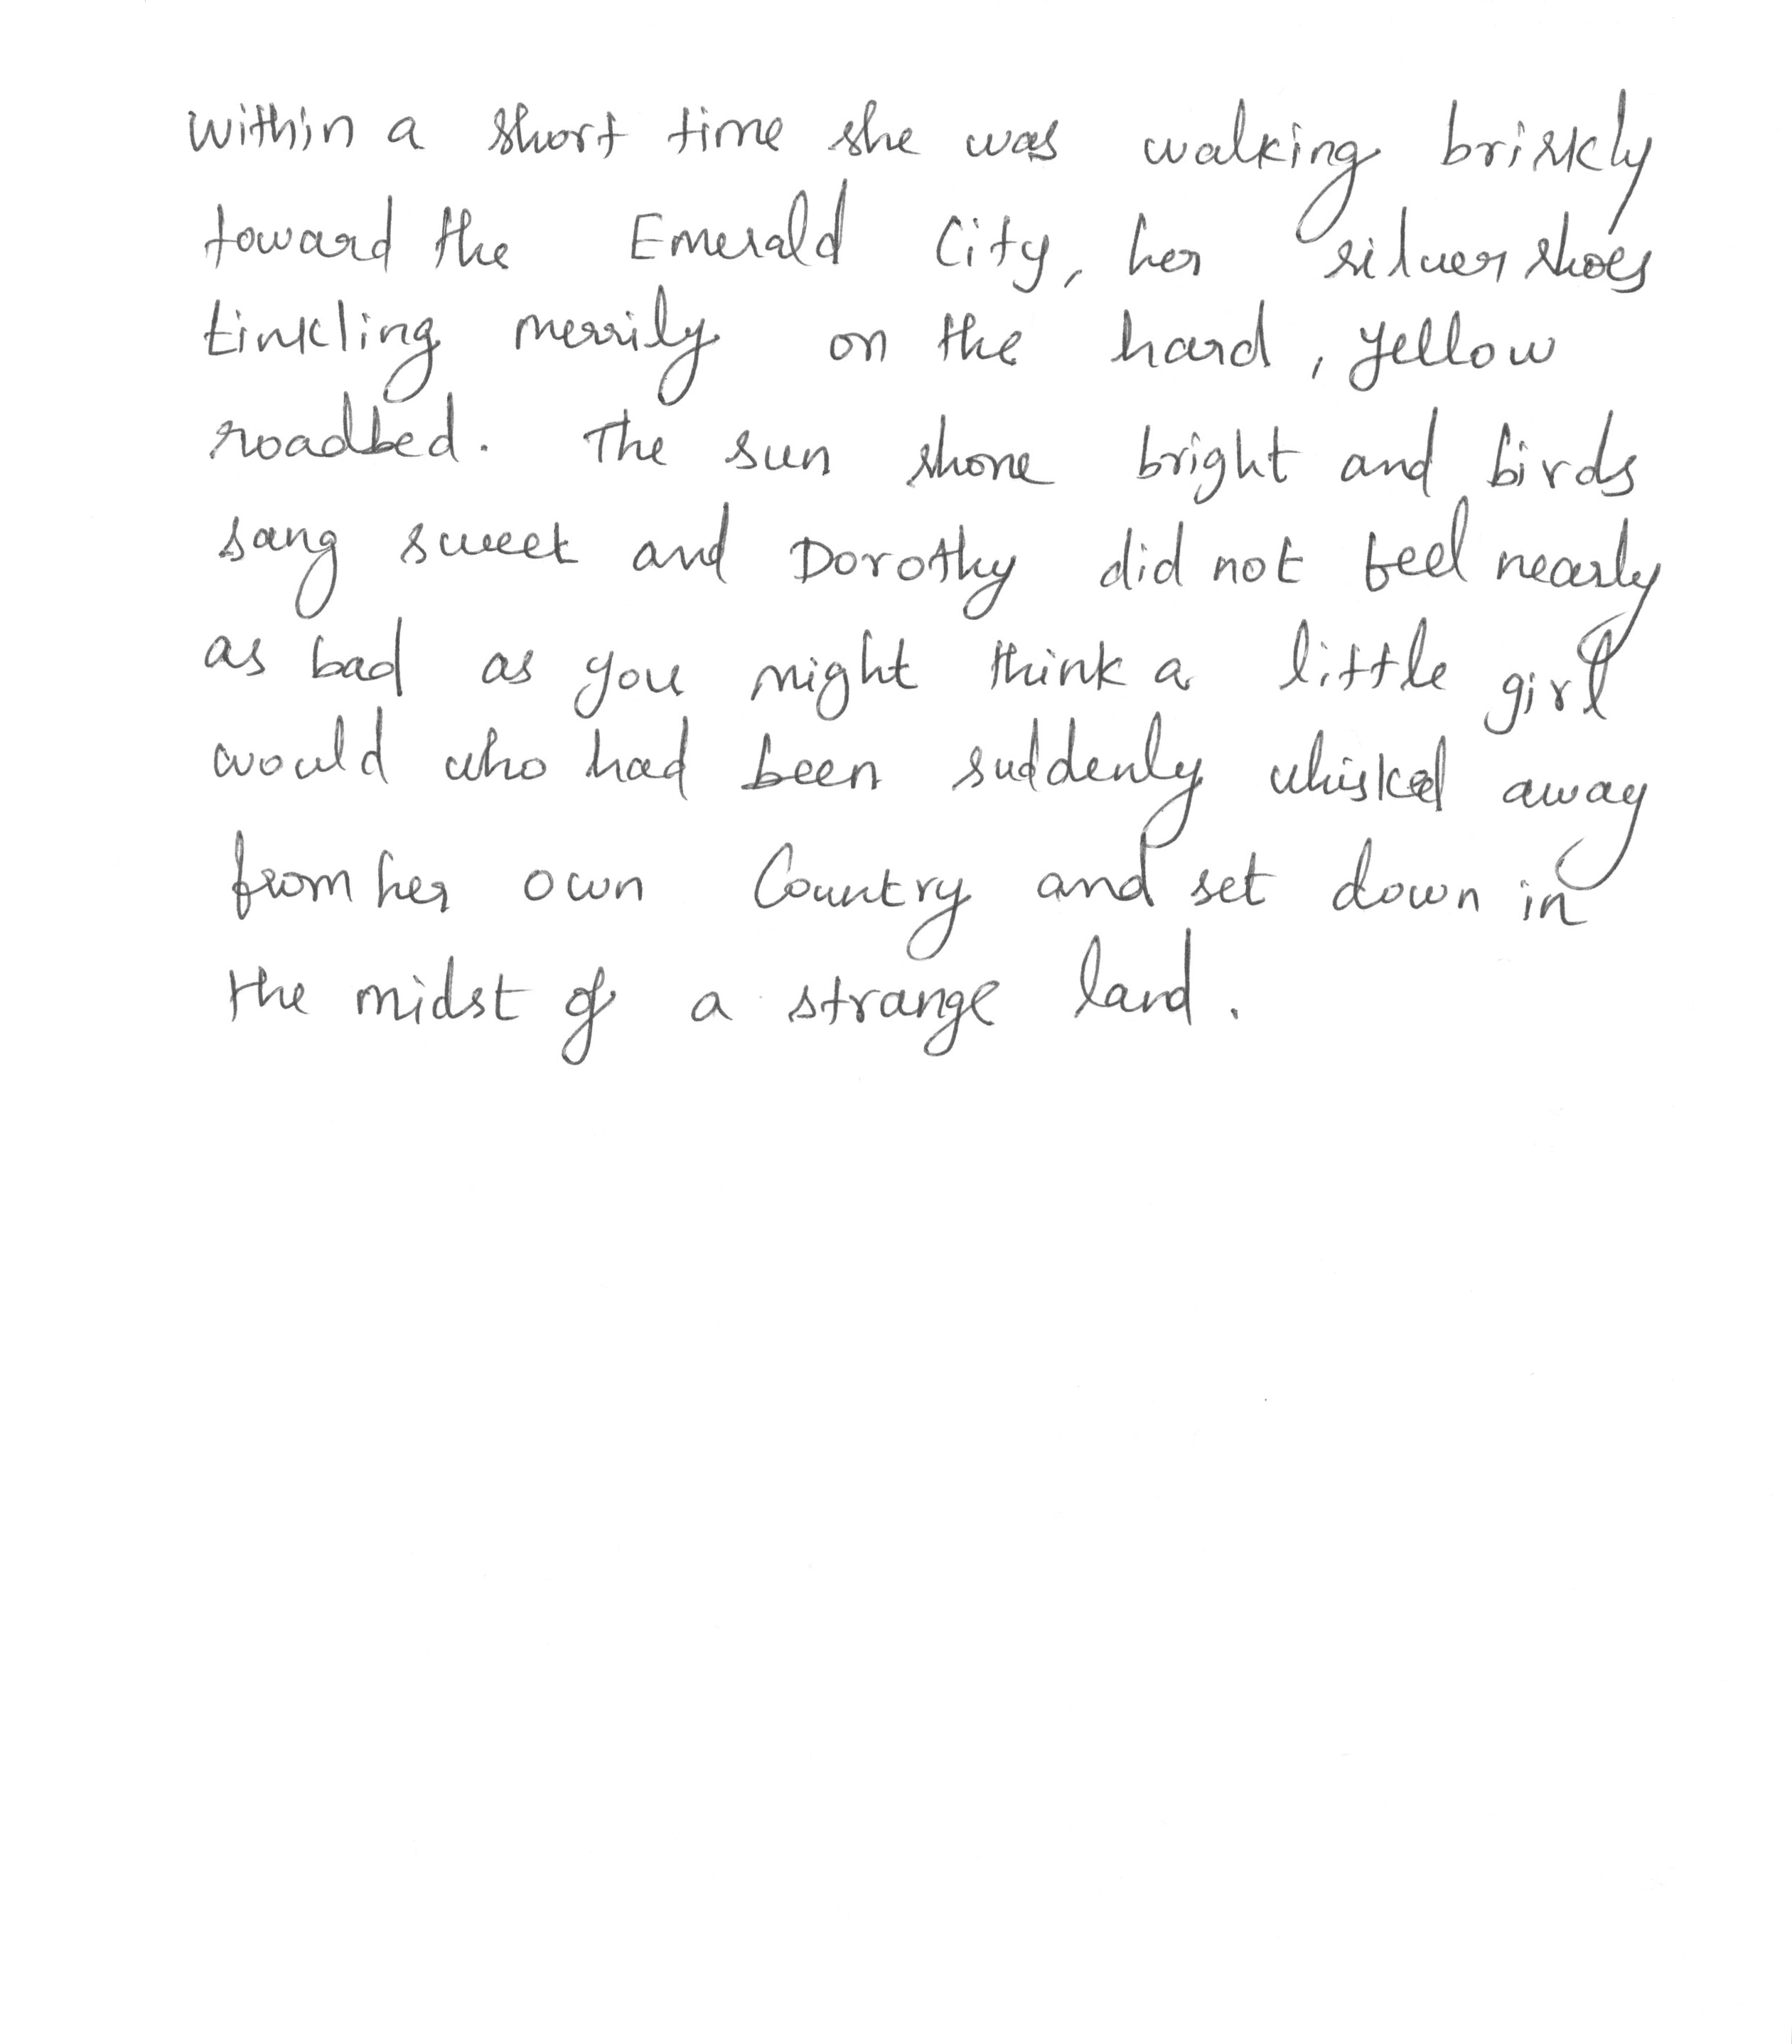 Within a short time she was walking briskly
toward the Emerald City, her silver shoes
tinkling merrily on the hard, yellow
roadbed. The sun shone bright and birds
sang sweet and Dorothy did not feel nearly
as bad as you might think a little girl
would who had been suddenly whisked away
from her own Country and set down in
the midst of a strange land.